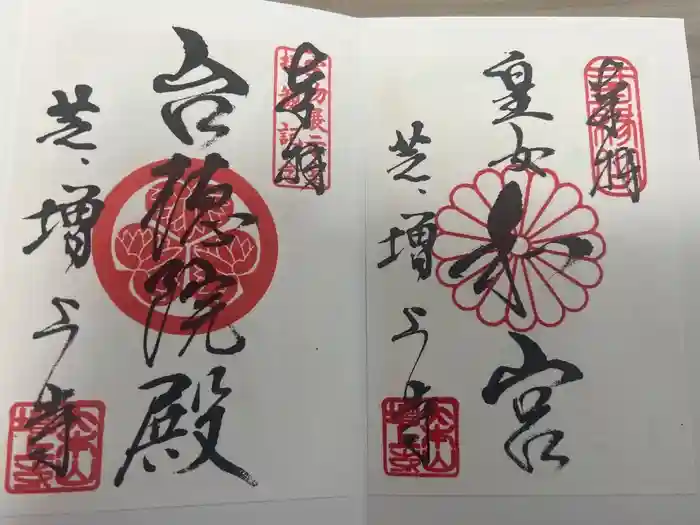 奉拝
皇女
和
宮
芝、増上寺
奉拝
台徳院殿
芝、増上寺